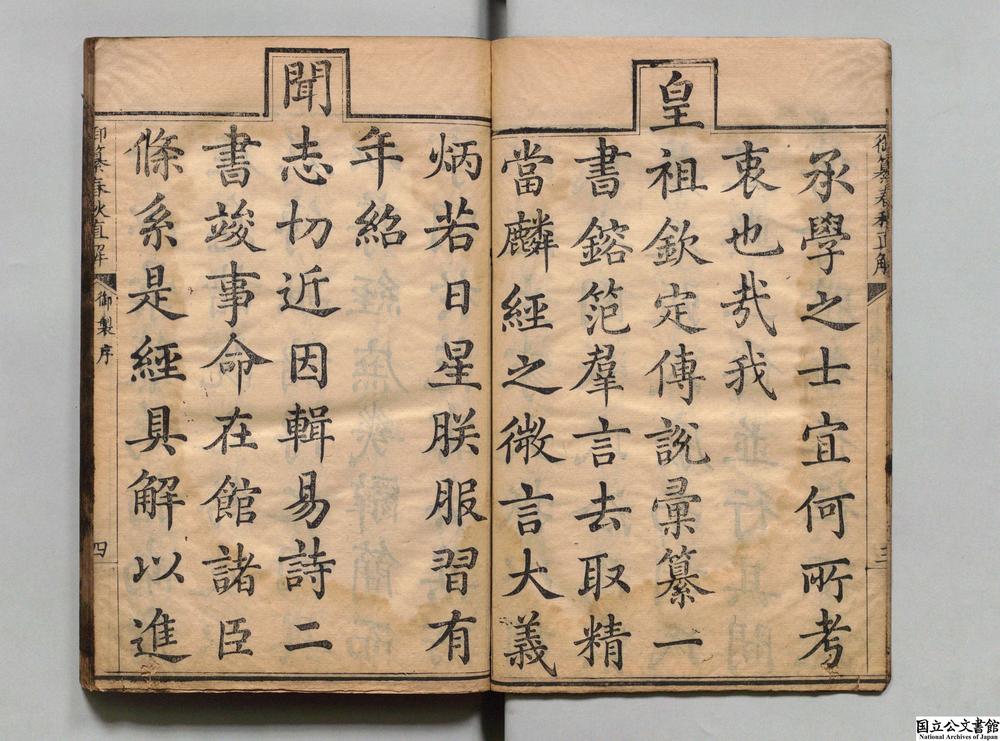 承學之士宜何所考
衷也哉我
皇祖欽定傳說彙纂一
書鎔范羣言去取精
當麟經之微言大義
炳若日星朕服習有
年紹
聞志切近因輯易詩二
書竣事命在館諸臣
條系是經具解以進
御纂春秋直解
三
御纂春秋直解
御製序
四
国立公文書館
National Archives of Japan